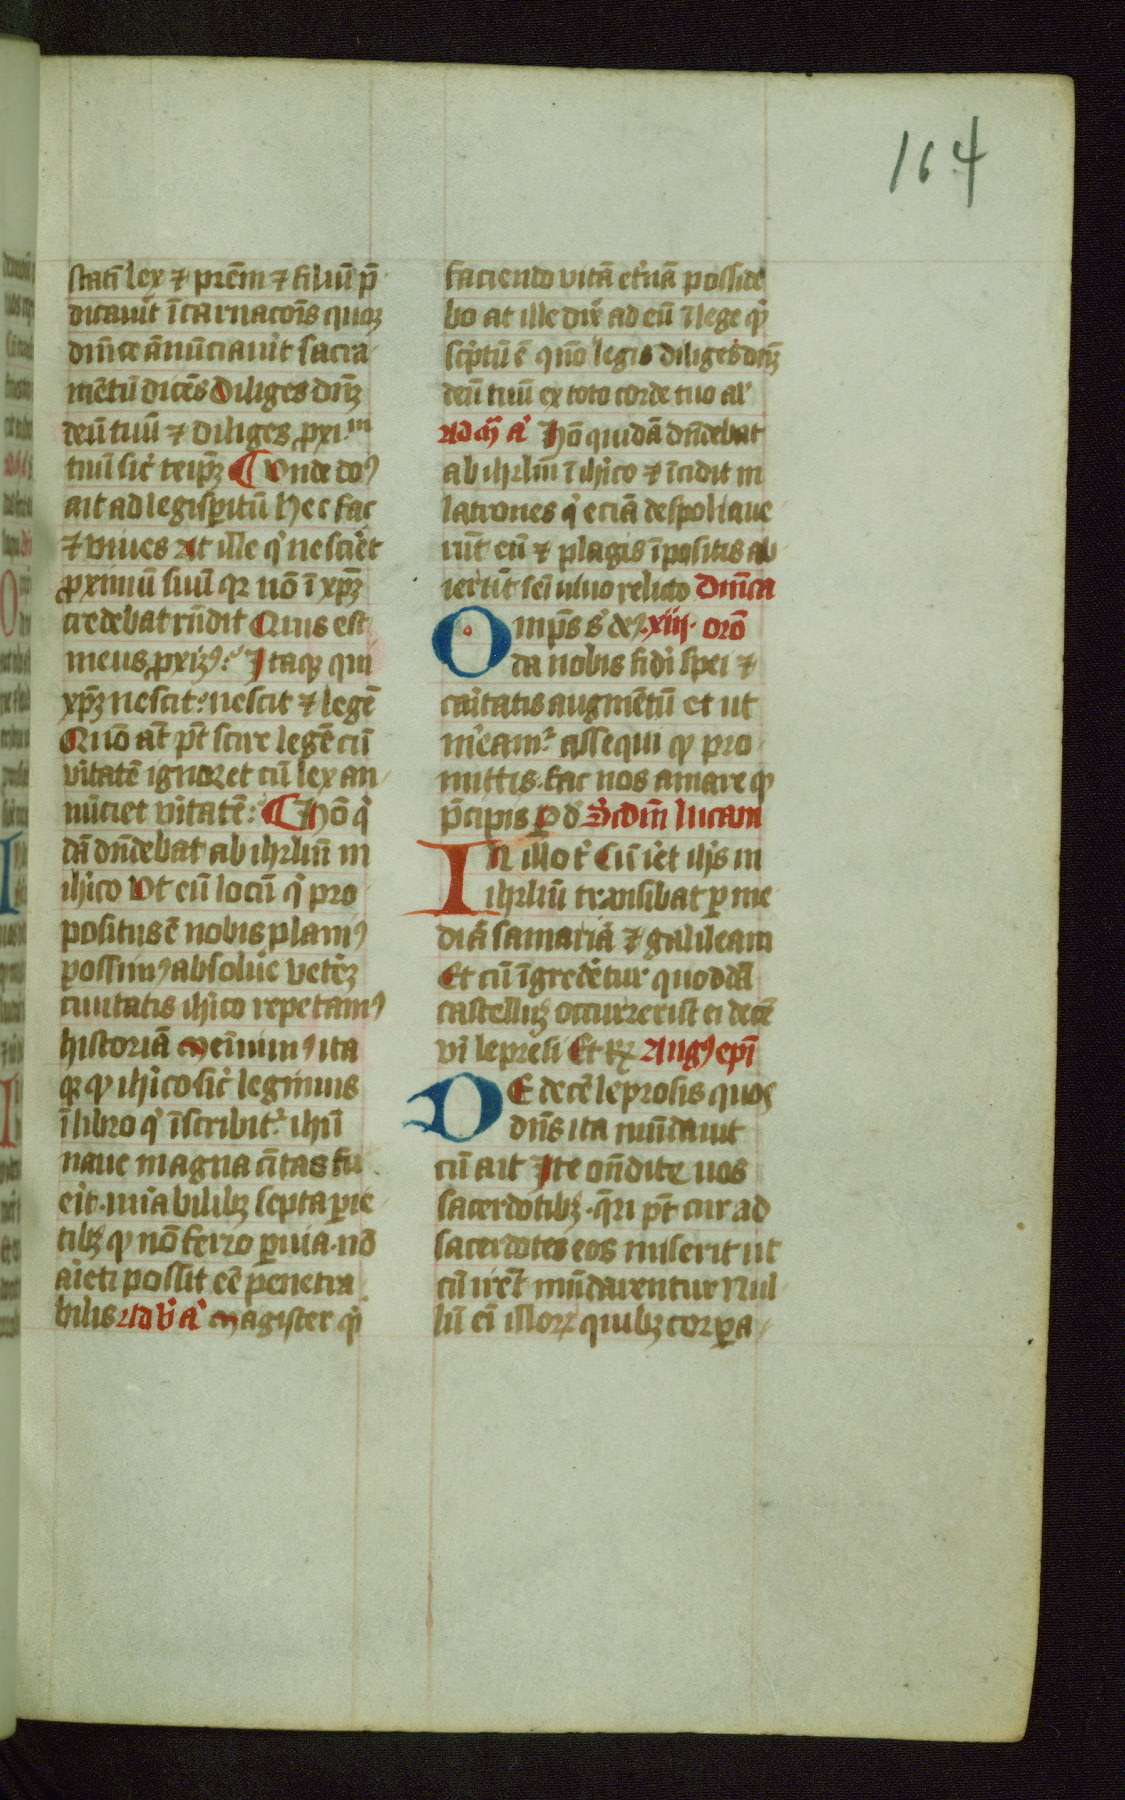 164
stati lex ⁊ prēm ⁊ filiū p̄
dicauit īcarnacōis quoqꝫ
dnīce ānūciauit sacra
mētū dicēs Diliges dnꝫ
deū tuū ⁊ diliges ꝓxi.m
tuū sic̄ teipꝫ ¶ Unde doꝰ
ait ad legispitū Hec fac
⁊ viues At ille q̄ nesciēt
ꝓximū suū qꝛ nō ī xpꝫ
credebat rn̄dit Quis est
meus ꝓxiꝰ: Itaqꝫ qui
xpꝫ nescit: nescit ⁊ legē
Quō at̄ pt̄ scire legē cū
v̄itatē ignoret cū lex an
nūciet v̄itatē: ¶ Hō q̇
dā dn̄debat ab ihrlm̄ in
ihico Ut eū locū q̇ pro
positus ē nobis planiꝰ
possimꝰ absolūe vetēꝫ
ciuitatis ihico repetamꝰ
historiā Meīnimꝰ ita
qꝫ ꝙ ihico sic̄ legimus
ī libro q̇ īscribit̄ ihū
naue magna cītas fu
eīt. mīabilibꝫ septa parie
tibꝫ ꝙ nō ferro ꝑuia. nō
aieti possit eē penetra
bilis Ad b̄ a᷎ Magister q̇
faciendo vitā et̄nā posside
bo at ille dix̄ ad eū ī lege q̇
sc̄ptū ē quō legis diliges dnꝫ
deū tuū ex toto corde tuo al᷎
Ad m̄ a᷎ Hō quidā dn̄debat
ab ihrlm̄ ī ihico ⁊ īcidit in
latrones q̇ eciā despoliaue
rūt eū ⁊ plagis īpositis ab
ierūt sēi viuo relicto Dnīca
Omp̄s s᷎ deꝰ .xiij. orō
da nobis fidī spei ⁊
caritatis augmētū et ut
m̄eamꝰ assequi ꝙ pro
mittis. fac nos amare ꝙ
p̄cipis ꝑ d S᷎cdm̄ lucam
In illo t᷎ Cū iēt ihs in
ihrlm̄ transibat ꝑ me
diā samariā ⁊ galileam
Et cū īgredētur quoddā
castellūꝫ occurrerūt ei decē
vī leprosi Et Rꝫ Augꝰ epī
DE decē leprosis quos
dn̄s ita mūdauit
cū ait Ite on̄dite uos
sacerdotibꝫ. q̄ri pt̄ cur ad
sacerdotes eos miserit ut
cū irēt mūdarentur Nul
lū eī illoꝝ quibꝫ corpa